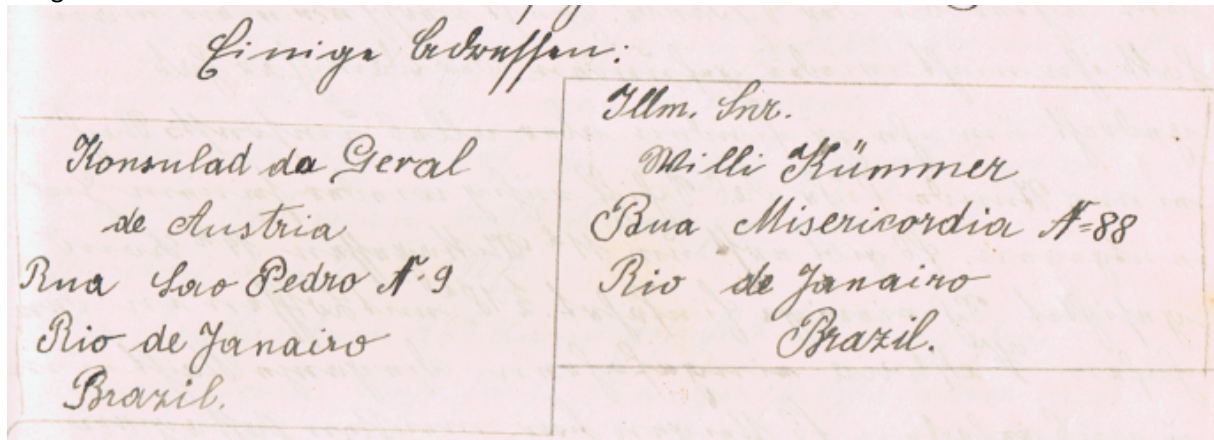 Einige Adressen:
Konsulad da Geral
de Austria
Rua Sao Pedro N. 9
Rio de Janairo
Brazil.
Illm. Snr.
Willi Kümmer
Rua Misericordia N=88
Rio de Janairo
Brazil.